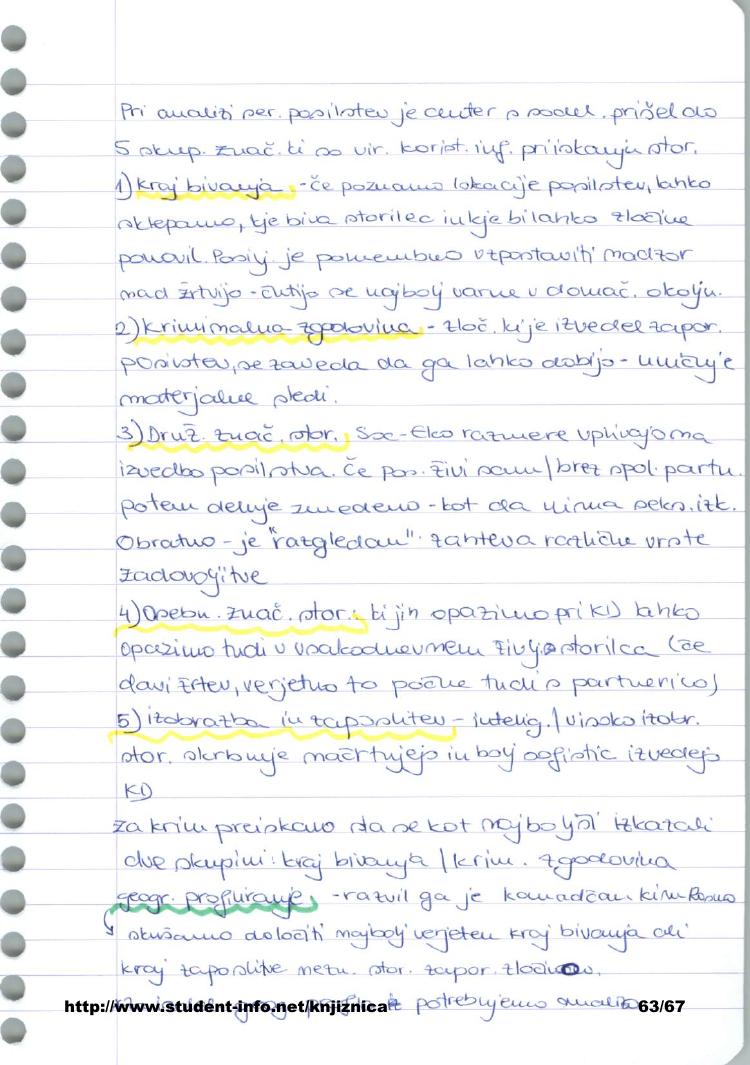 Pri analizi ser. posilstev je center s sodel. prišel do
5 skup. znač. ki so vir. korist. inf. pri iskanju stor.
1) Kraj bivanja - če poznamo lokacije posilstev, lahko
sklepamo, kje biva storilec in kje bi lahko zločine
ponovil. Poslj je pomembno vzpostaviti nadzor
nad žrtvijo - čutijo se najbolj varne v domač. okolju.
2) Kriminalna zgodovina - zloč. ki je izvedel zapor.
posilstev, se zaveda da ga lahko dobijo - uničuje
materjalne sledi.
3) Druž. znač. stor. Soc-Eko razmere vplivajo na
izvedbo posilstva. Če pos. živi sam / brez spol. partn.
potem deluje zmedeno - kot da nima seks. izk.
Obratno - je "razgledan". zahteva različne vrste
zadovoljitve
4) Osebn. znač. stor. ki jih opazimo pri KD lahko
opazimo tudi v vsakodnevnem življ. storilca (če
davi žrtev, verjetno to počne tudi s partnerico)
5) izobrazba in zaposlitev - intelig. / visoko izobr.
stor. skrbneje načrtujejo in bolj sofistic izvedejo
KD
za krim preiskavo sta se kot najboljši izkazali
dve skupini: kraj bivanja / krim. zgodovina
geogr. profiliranje - razvil ga je kanadčan kim Rosmo
skušamo določiti najbolj verjeten kraj bivanja ali
kraj zaposlitve nezn. stor. zapor. zločinov.
potrebujemo analizo
http://www.student-info.net/knjiznica 63/67